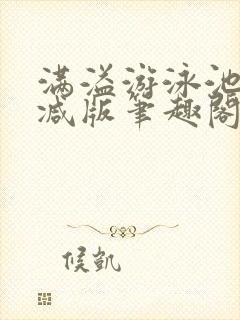 满溢游泳池
减版笔趣阁
候凯